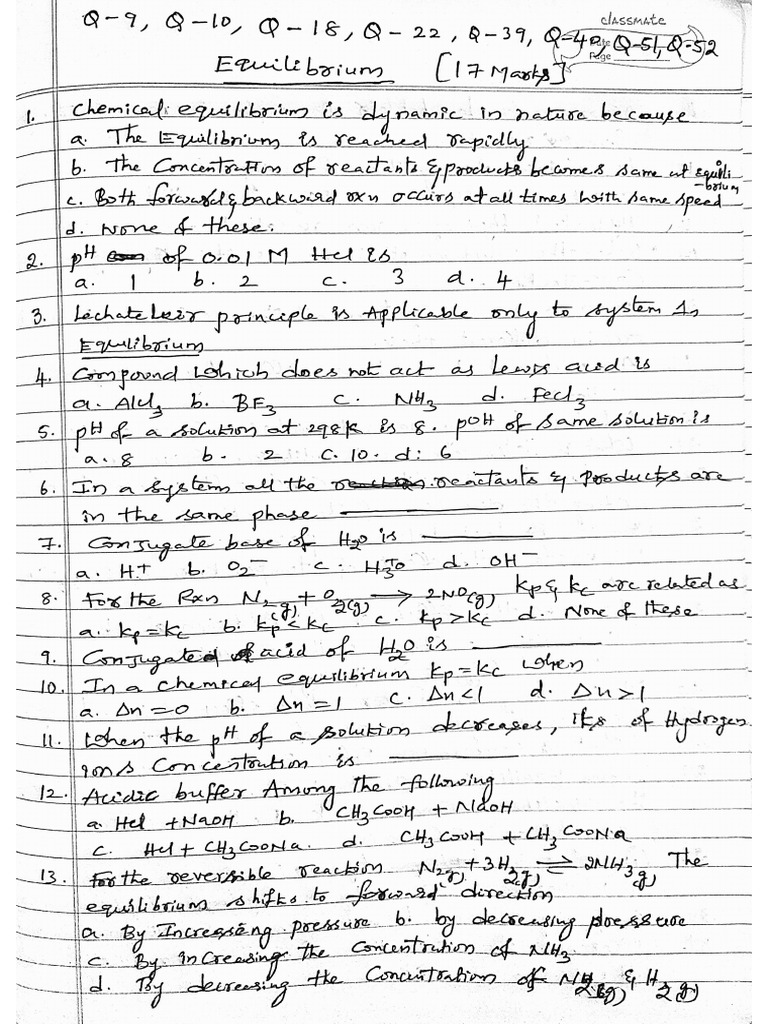 classmate
Q-9, Q-10, Q-18, Q-22, Q-39, Q-40, Q-51, Q-52
Page
Equilibrium [17 Marks]
1. Chemical equilibrium is dynamic in nature because
a. The Equilibrium is reached rapidly
b. The Concentration of reactants & products becomes same at equili-brium
c. Both forward & backward rxn occurs at all times with same speed
d. None of these.
2. pH of 0.01 M Hcl is
a. 1 b. 2 c. 3 d. 4
3. Lechatelier principle is Applicable only to system In
Equilibrium
4. Compound which does not act as Lewis acid is
a. Alcl3 b. BF3 c. NH3 d. Fecl3
5. pH of a solution at 298k is 8. pOH of same solution is
a. 8 b. 2 c. 10. d. 6
6. In a system all the reactants & products are
in the same phase ______
7. Conjugate base of H2O is ______
a. H+ b. O2- c. H3+O d. OH-
8. For the Rxn N2(g) + O2(g) → 2NO(g) kp & kc are related as
a. kp=kc b. kp<kc c. kp>kc d. None of these
9. Conjugate acid of H2O is ______
10. In a chemical equilibrium kp=kc when
a. Δn=0 b. Δn=1 c. Δn<1 d. Δn>1
11. When the pH of a solution decreases, its of Hydrogen
ions Concentration is ______
12. Acidic buffer Among the following
a. Hcl + NaOH b. CH3COOH + NaOH
c. Hcl + CH3COONa. d. CH3COOH + CH3COONa
13. For the reversible reaction N2(g) + 3H2(g) ⇌ 2NH3(g) The
equilibrium shifts to forward direction
a. By Increasing pressure b. by decreasing pressure
c. By increasing the Concentration of NH3
d. By decreasing the Concentration of N2(g) & H2(g)